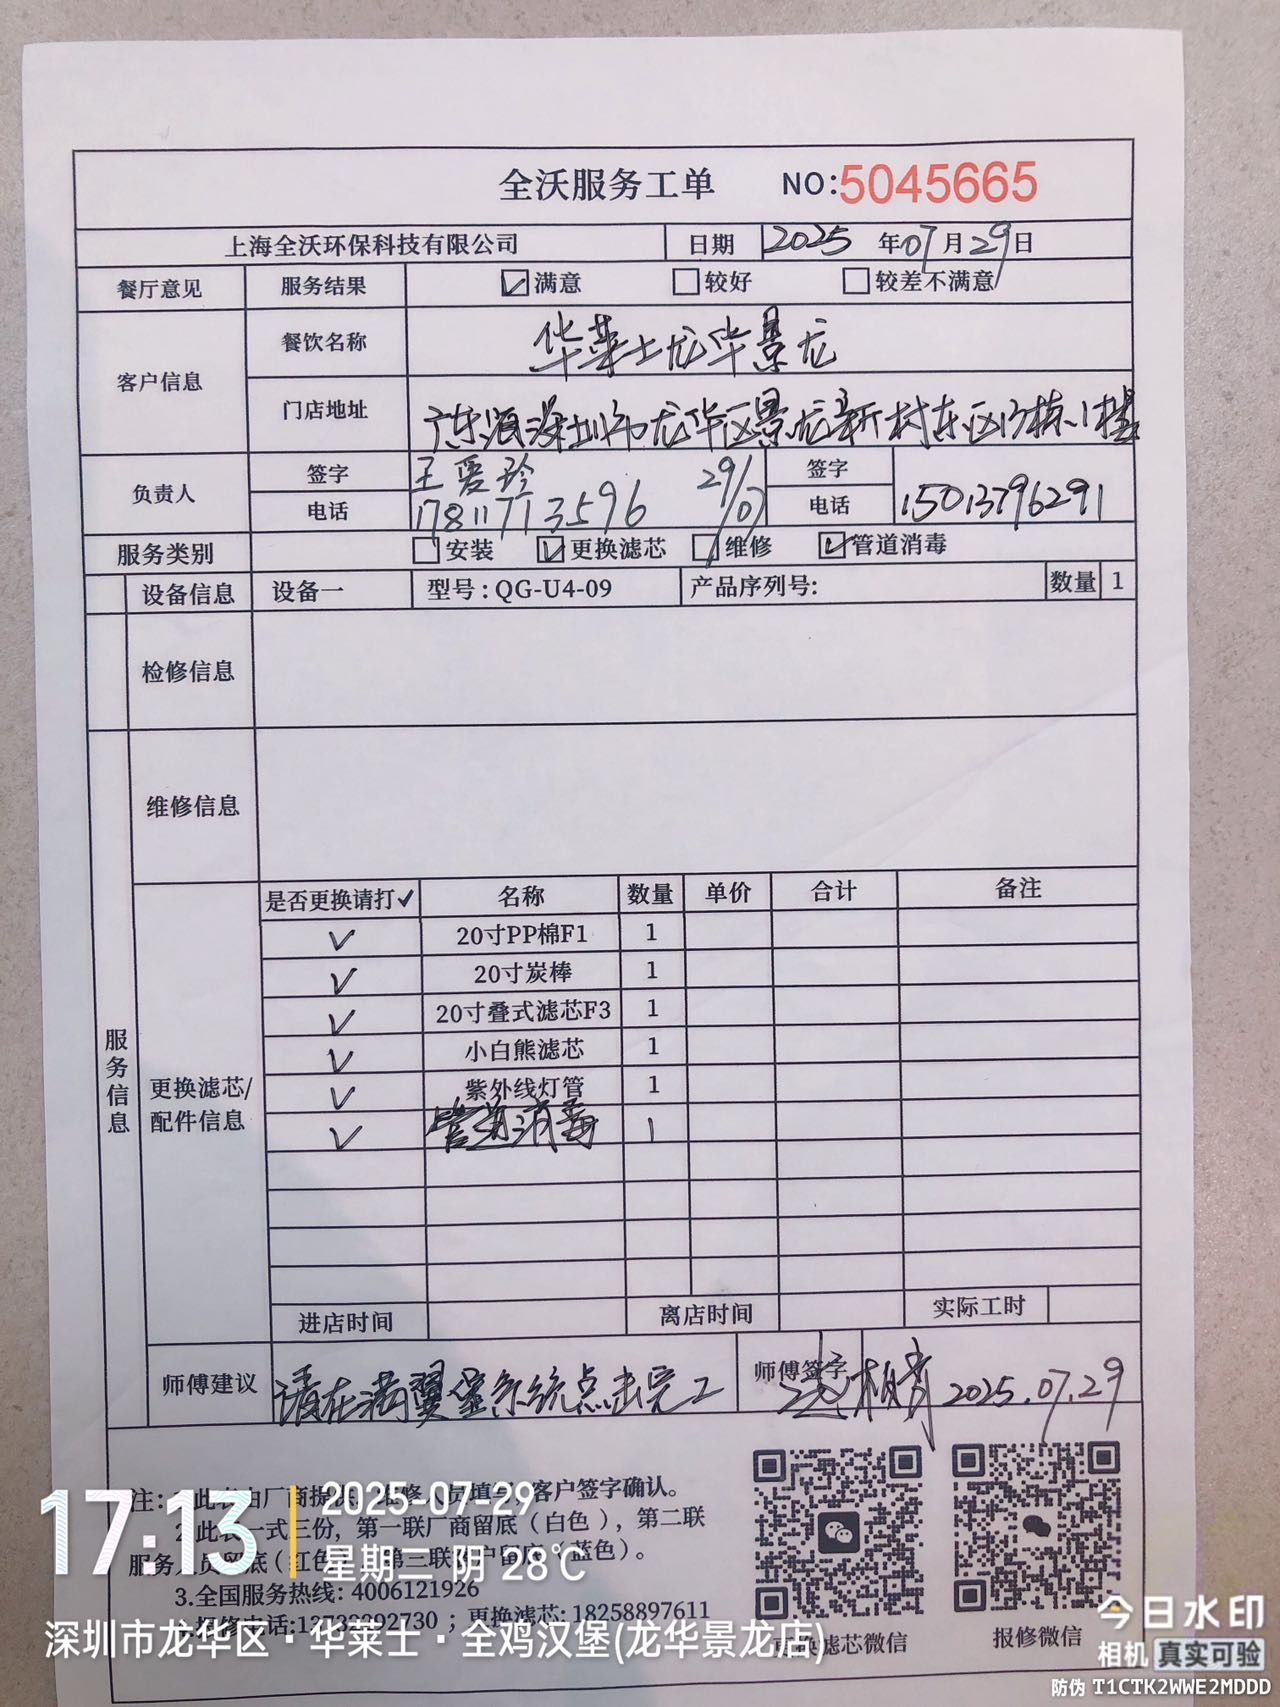 全沃服务工单 NO:5045665
上海全沃环保科技有限公司 日期 2025 年07月29日
餐厅意见 服务结果 ☑满意 ☐较好 ☐较差不满意
客户信息 餐饮名称 华莱士龙华景龙
门店地址 广东省深圳市龙华区景龙新村东区13栋1楼
负责人 签字 王爱玲 29/07 签字
电话 17811713596 电话 15013796291
服务类别 ☐安装 ☑更换滤芯 ☐维修 ☑管道消毒
设备信息 设备一 型号:QG-U4-09 产品序列号: 数量 1
检修信息
维修信息
服务信息
更换滤芯/配件信息
是否更换请打✓ 名称 数量 单价 合计 备注
✓ 20寸PP棉F1 1
✓ 20寸炭棒 1
✓ 20寸叠式滤芯F3 1
✓ 小白熊滤芯 1
✓ 紫外线灯管 1
✓ 管道消毒 1
进店时间 离店时间 实际工时
师傅建议 请在满翼星系统点击完工 师傅签字 2025.07.29
注: 此 由厂商提 人员填写,客户签字确认。
2.此表一式三份,第一联厂商留底(白色),第二联
服务人员留底(红色) 第三联 户留底(蓝色)。
3.全国服务热线:4006121926
报修电话: ;更换滤芯:18258897611
更换滤芯微信 报修微信
17:13 2025-07-29
星期二 阴 28℃
深圳市龙华区·华莱士·全鸡汉堡(龙华景龙店)
今日水印
相机 真实可验
防伪 T1CTK2WWE2MDDD